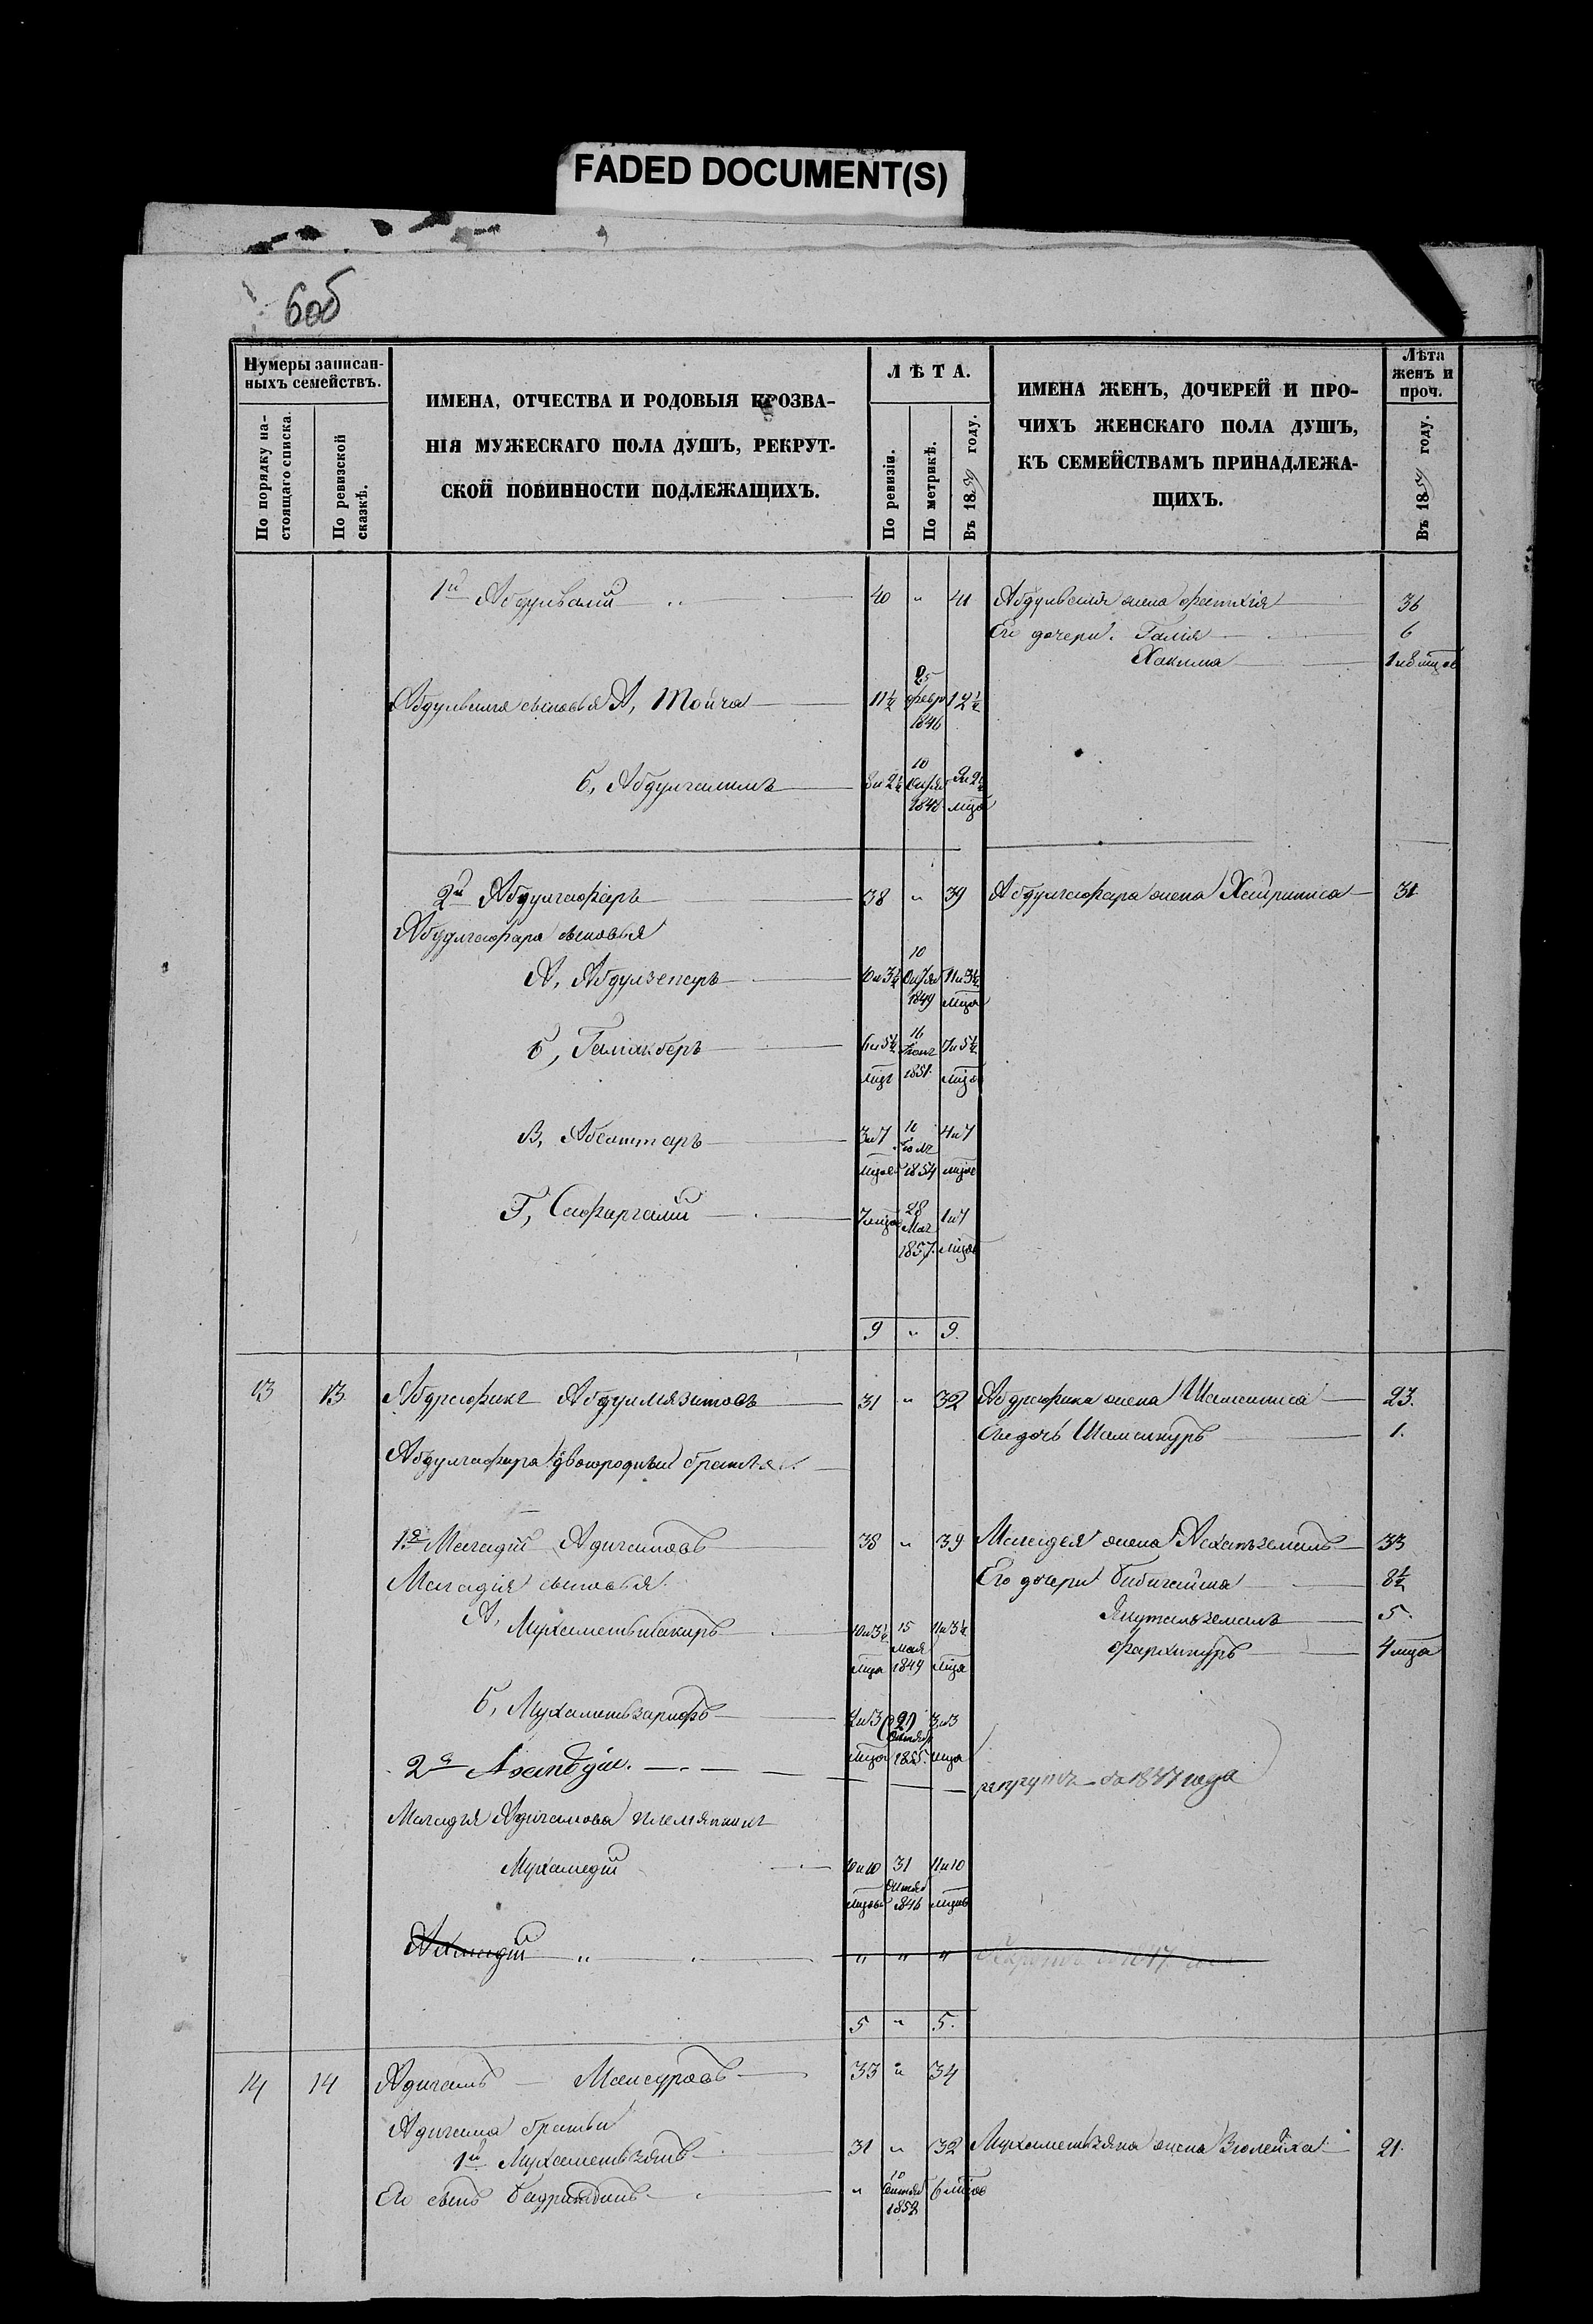 FADED DOCUMENT(S)
6об
Нумеры записан-
ныхъ семействъ.
По порядку на-
стоящаго списка.
По ревизской
сказкѣ.
ИМЕНА, ОТЧЕСТВА И РОДОВЫЯ ПРОЗВА-
НІЯ МУЖЕСКАГО ПОЛА ДУШЪ, РЕКРУТ-
СКОЙ ПОВИННОСТИ ПОДЛЕЖАЩИХЪ.
ЛѢТА.
По ревизіи.
По метрикѣ.
Въ 18 году.
ИМЕНА ЖЕНЪ, ДОЧЕРЕЙ И ПРО-
ЧИХЪ ЖЕНСКАГО ПОЛА ДУШЪ,
КЪ СЕМЕЙСТВАМЪ ПРИНАДЛЕЖА-
ЩИХЪ.
Лѣта
женъ и
проч.
Въ 18 году.
1й Абдулвалій 40 " 41 Абдулвалія жена Фатхія 36
Его дочери: Галія 6
Хакима 1 и 8 мцов
Абдулвалія сыновья А, Мойча 11½ 25 февр 1846 12½
Б, Абдулгалимъ 10 1848 мцa
2й Абдулгафаръ 38 " 39 Абдулгафара жена Хайриниса 31
Абдулгафара сыновья
А, Абдулзепаръ 10 и 3½ 10 1849 11 и 3½ мцa
Б, Галиакберъ 6 и 5½ мцa 16 1851 7 и 5½ мцa
В, Абсаттаръ 3 и 7 мцов 10 1854 4 и 7 мцов
Г, Сафаргалій 7 мцов 28 Мая 1857 1 и 7 мцов
9 " 9.
13 13 Абдрафикъ Абдулмязитовъ 31 " 32 Абдрафика жена Шамсиниса 23.
Его дочь Шамсинуръ 1.
Абдулгафара двоюродныи братья
1й Магадій Адигамовъ 38 " 39 Магадея жена 33
Магадія сыновья
Его дочери Бибигайша 8½
А, Мухаметшакиръ 10 и 3½ мцa 15 мая 1849 11 и 3½ мцa
5.
Фархинуръ 4 мцa
Б, Мухаметзарифъ 2 и 3 мцa 1855 3 и 3 мцa
2й
рекрутъ 1847 года
Магадія Адигамова племянникъ
Мухамедій 10 и 10 мцовъ 31 1846 11 и 10 мцовъ
Ахмадій " " "
5 " 5.
14 14 Адигамъ Мансуровъ 33 " 34
Адигама братья
1й Мухаметзянъ 31 " 32 Мухаметзяна жена Зюлейха 21.
Его сынъ Бадритдинъ " 10 1858 6 мцов